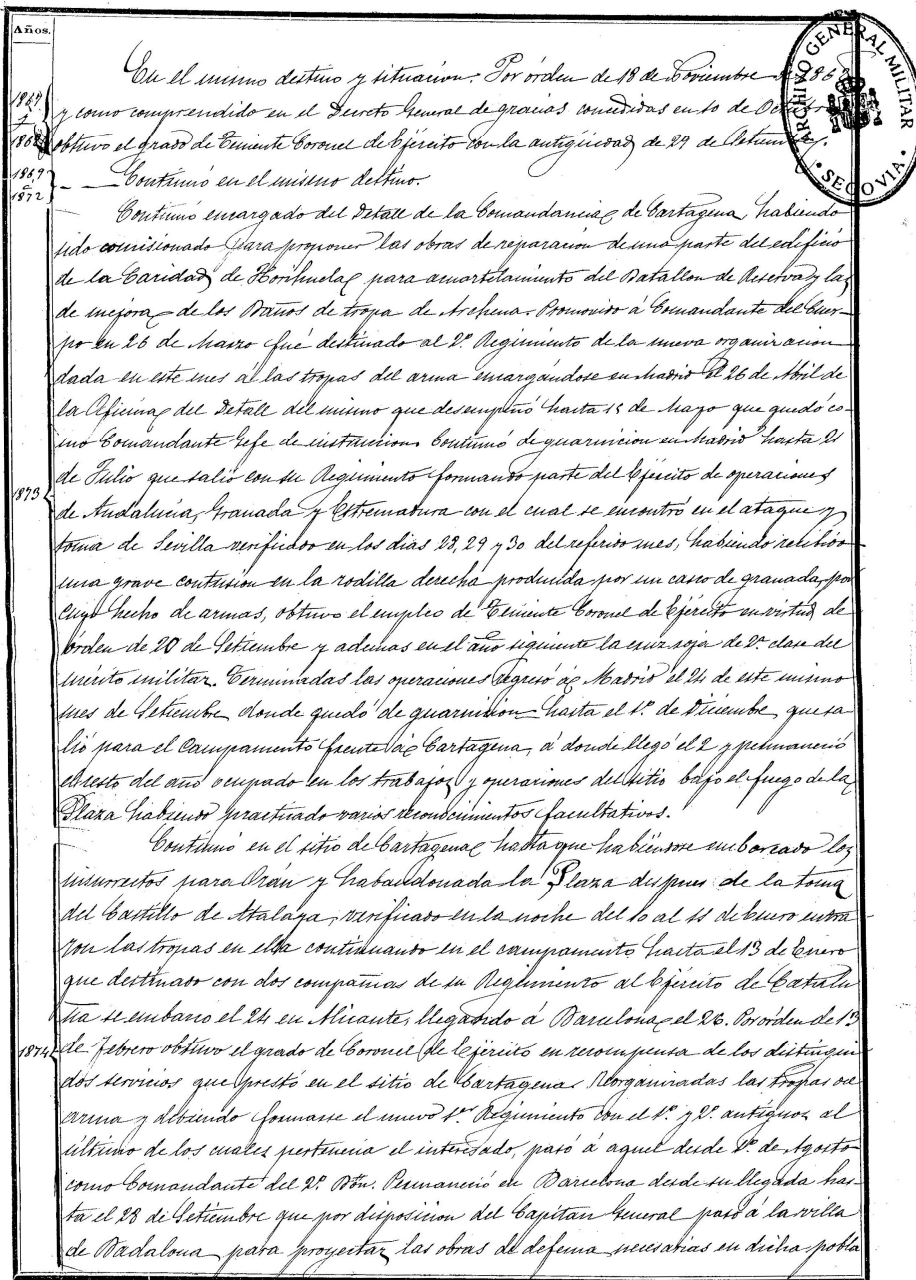 Años.
ARCHIVO GENERAL MILITAR
· SEGOVIA ·
En el mismo destino y situacion. Por órden de 18 de Noviembre de 1868
1867
y como comprendido en el Decreto General de gracias concedidas en 10 de Octubre
1868
obtuvo el grado de Teniente Coronel de Ejército con la antigüedad de 29 de Setiembre.
1869
á
1872
Continuó en el mismo destino.
Continuó encargado del Detall de la Comandancia de Cartagena, habiendo
sido comisionado para proponer las obras de reparacion de una parte del edificio
de la Caridad de Horihuela para acuartelamiento del Batallon de Reserva y las
de mejora de los Baños de tropa de Archena. Promovido á Comandante del Cuer-
po en 26 de Marzo fué destinado al 2º Regimiento de la nueva organizacion
dada en este mes á las tropas del arma encargándose en Madrid el 26 de Abril de
la Oficina del Detall del mismo que desempeñó hasta 15 de Mayo que quedó co-
mo Comandante Gefe de instruccion. Continuó de guarnicion en Madrid hasta 21
de Julio que salió con su Regimiento formando parte del Ejército de operaciones
1873
de Andalucía, Granada y Estremadura con el cual se encontró en el ataque y
toma de Sevilla verificado en los dias 28, 29 y 30 del referido mes, habiendo recibido
una grave contusion en la rodilla derecha producida por un casco de granada, por
cuyo hecho de armas, obtuvo el empleo de Teniente Coronel de Ejército en virtud de
órden de 20 de Setiembre y ademas en el año siguiente la cruz roja de 2ª clase del
mérito militar. Terminadas las operaciones regresó á Madrid el 24 de este mismo
mes de Setiembre donde quedó de guarnicion hasta el 1º de Diciembre que sa
lió para el Campamento frente á Cartagena, á donde llegó el 2 y permaneció
el resto del año ocupado en los trabajos y operaciones del sitio bajo el fuego de la
Plaza habiendo practicado varios reconocimientos facultativos.
Continuó en el sitio de Cartagena hasta que habiéndose embarcado los
insurrectos para Orán y habandonada la Plaza despues de la toma
del Castillo de Atalaya, verificado en la noche del 10 al 11 de Enero entra
ron las tropas en ella continuando en el campamento hasta el 13 de Enero
que destinado con dos compañias de su Regimiento al Ejército de Catalu
ña se embarcó el 24 en Alicante, llegando á Barcelona el 26. Por órden de 13
1874
de Febrero obtuvo el grado de Coronel de Ejército en recompensa de los distingui
dos servicios que prestó en el sitio de Cartagena. Reorganizadas las tropas del
arma y debiendo formarse el nuevo 1er Regimiento con el 1º y 2º antiguos al
último de los cuales pertenecia el interesado, pasó á aquel desde 1º de Agosto
como Comandante del 2º Bon. Permaneció en Barcelona desde su llegada has-
ta el 28 de Setiembre que por disposicion del Capitan General pasó á la villa
de Badalona para proyectar las obras de defensa necesarias en dicha pobla